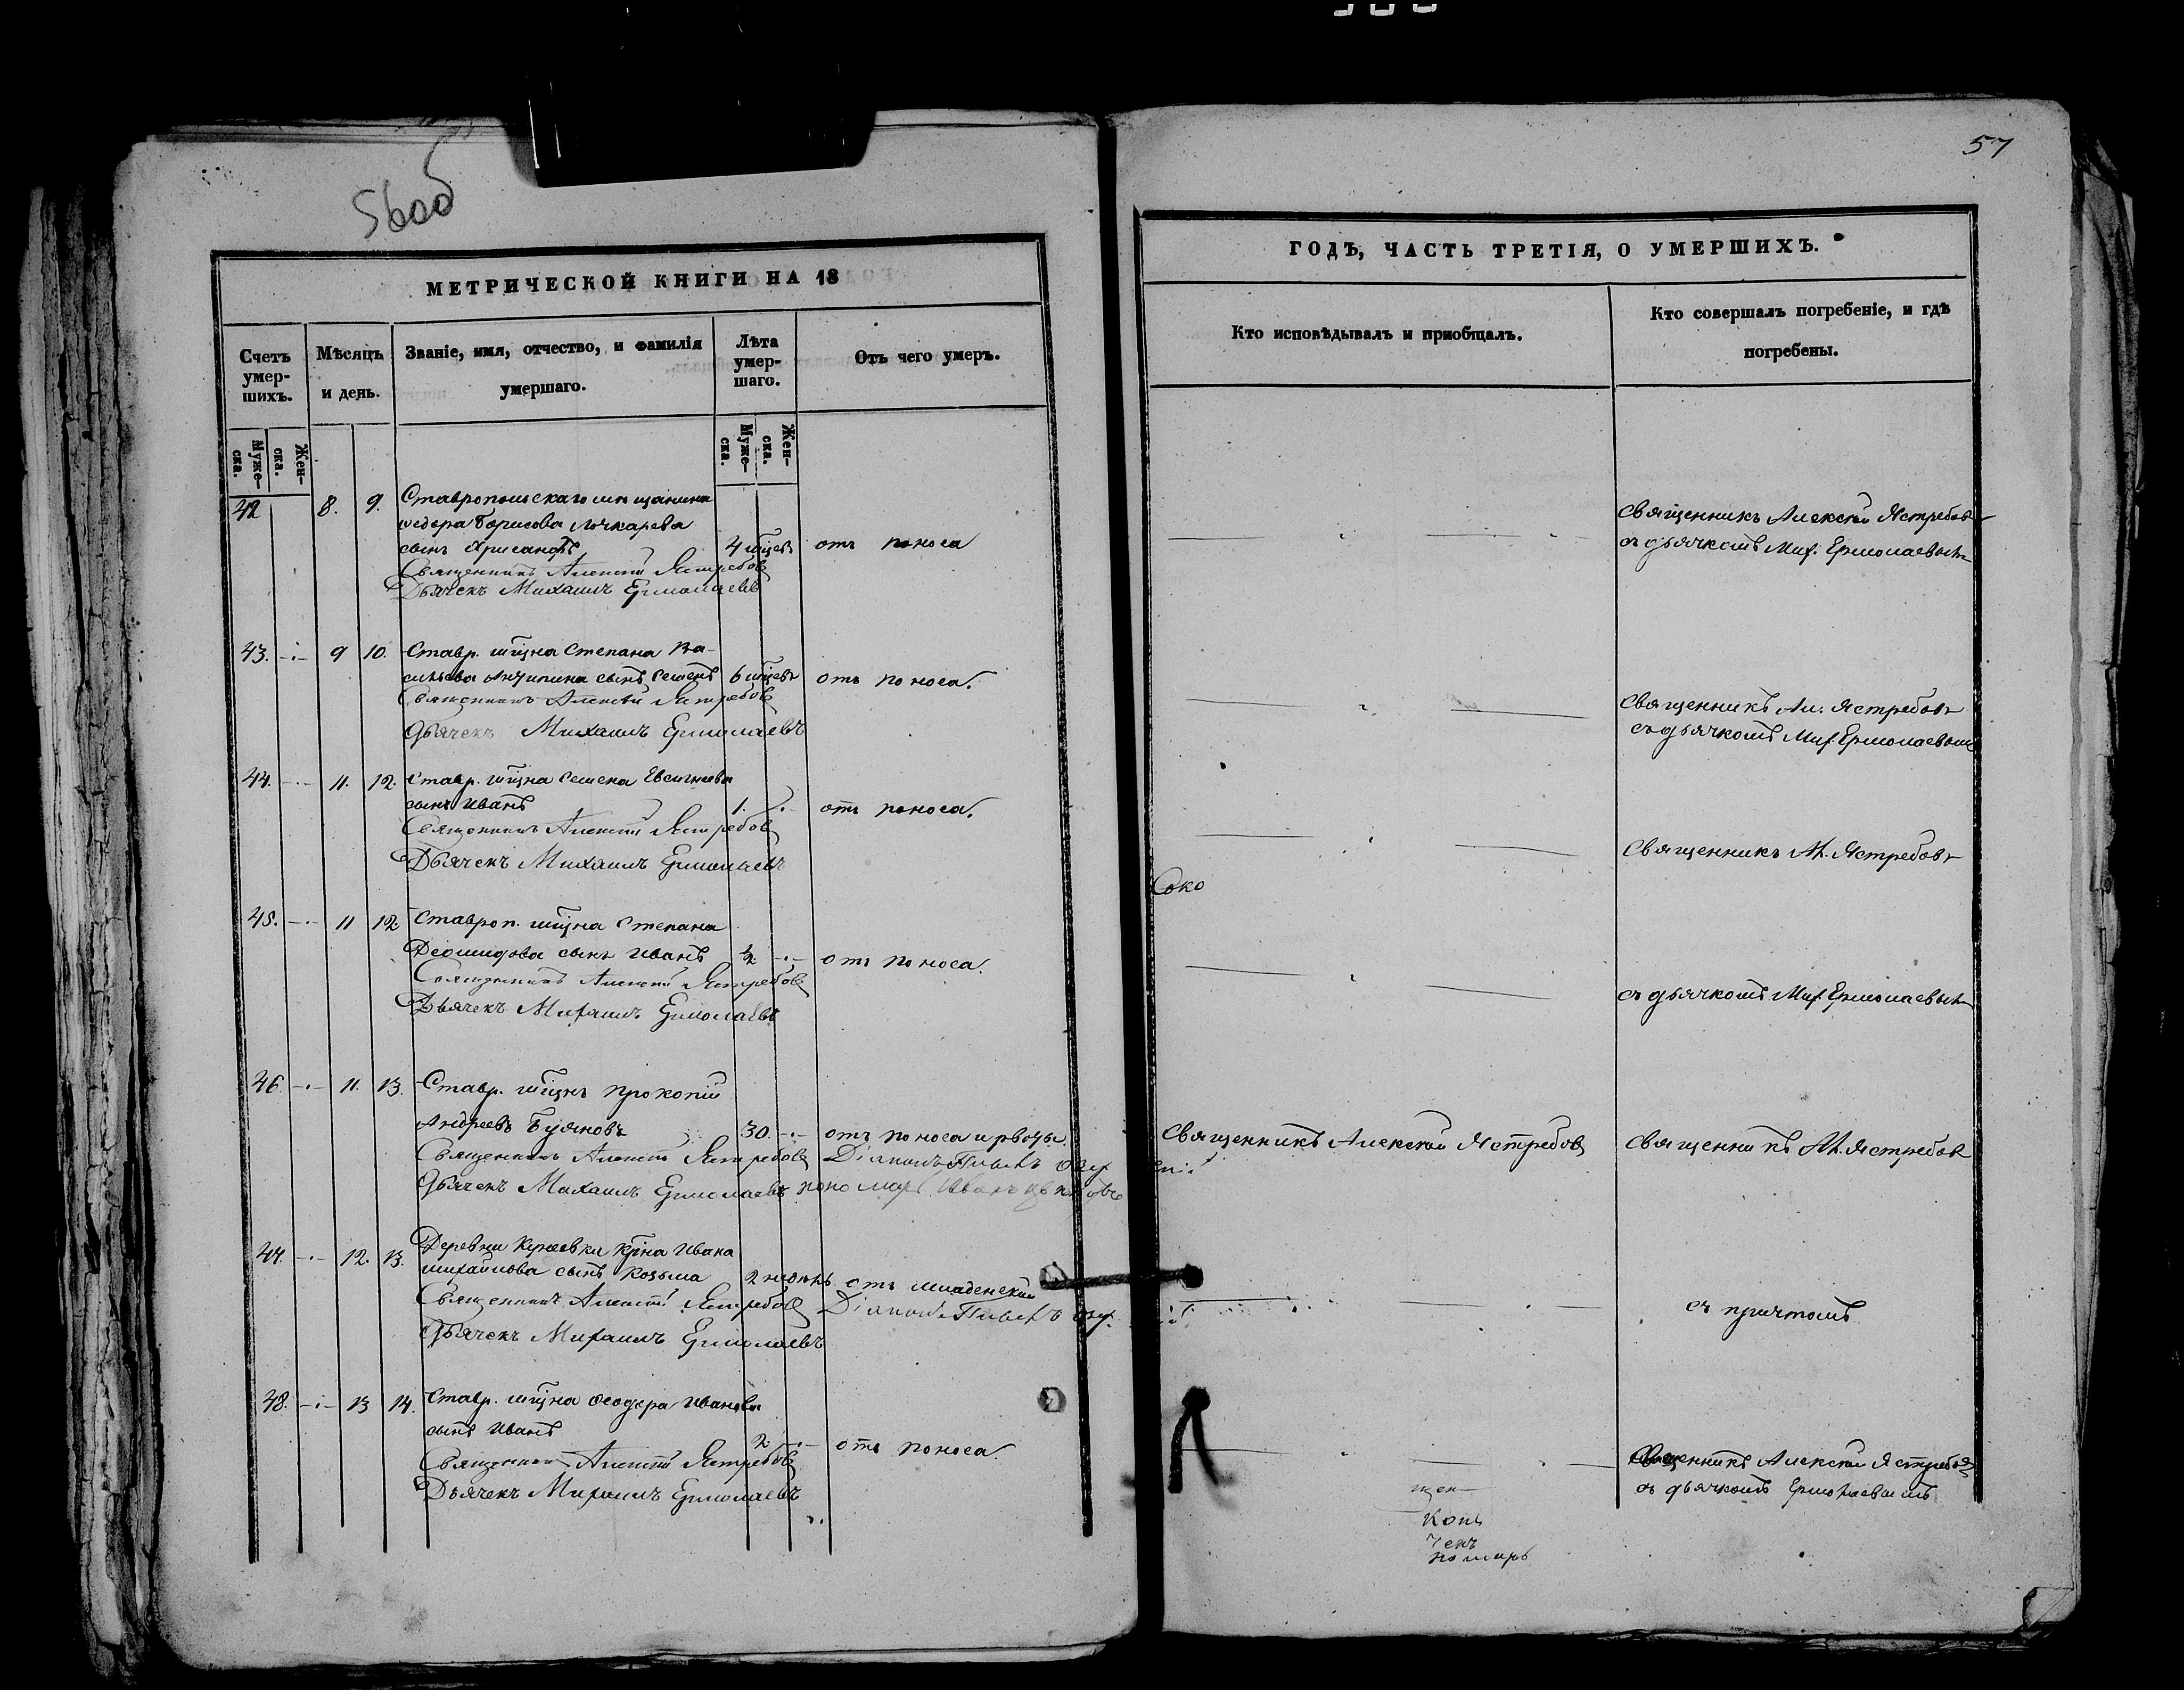 56об
МЕТРИЧЕСКОЙ КНИГИ НА 18
Счетъ умер-шихъ.
Муже-ска.
Жен-ска.
Мѣсяцъ и день.
Званіе, имя, отчество, и фамилія умершаго.
Лѣта умер-шаго.
Муже-ска.
Жен-ска.
Отъ чего умеръ.
42 8. 9. Ставропольскаго мѣщанина
Федора Борисова Лочкарева
сынъ Хрисанфъ 4 мцевъ отъ поноса
Священникъ Алексій Ястребовъ
Дьячекъ Михаилъ Ермолаевъ
43. 9 10. Ставр. мщна Степана Ва-
сильева Антипина сынъ Семенъ 6 мцевъ отъ поноса.
Священникъ Алексій Ястребовъ
Дьячекъ Михаилъ Ермолаевъ
44. 11. 12. Ставр. мщна Семена Евсигнеева
сынъ Иванъ 1. отъ поноса.
Священникъ Алексій Ястребовъ
Дьячекъ Михаилъ Ермолаевъ
45. 11 12 Ставроп. мщна Степана
Деомидова сынъ Иванъ ½ отъ поноса.
Священникъ Алексій Ястребовъ
Дьячекъ Михаилъ Ермолаевъ
46. 11. 13. Ставр. мщнъ Прокопій
Андреевъ Буяновъ 30. отъ поноса и рвоты.
Священникъ Алексій Ястребовъ
Дьячекъ Михаилъ Ермолаевъ пономарь Иванъ
47. 12. 13. Деревни Кунеевки крна Ивана
Михайлова сынъ Козьма 2 недѣль отъ младенской
Священникъ Алексій Ястребовъ
Дьячекъ Михаилъ Ермолаевъ
48. 13 14. Ставр. мщна Феодора Иванова
сынъ Иванъ 2 отъ поноса.
Священникъ Алексій Ястребовъ
Дьячекъ Михаилъ Ермолаевъ
57
ГОДЪ, ЧАСТЬ ТРЕТІЯ, О УМЕРШИХЪ.
Кто исповѣдывалъ и пріобщалъ.
Кто совершалъ погребеніе, и гдѣ погребены.
Священникъ Алексій Ястребовъ
съ дьячкомъ Мих. Ермолаевымъ
Священникъ Ал. Ястребовъ
съ дьячкомъ Мих. Ермолаевымъ
Священникъ Ал. Ястребовъ
Соко
съ дьячкомъ Мих. Ермолаевымъ
Священникъ Алексій Ястребовъ Священникъ Ал. Ястребовъ
съ причтомъ
Священникъ Алексій Ястребовъ
съ дьячкомъ Ермолаевымъ
щен
Копі
чекъ
номарь